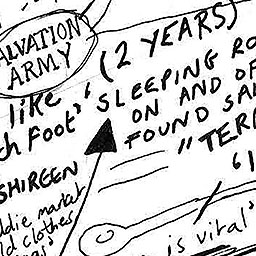 ALVATION
ARMY
(2 YEARS)
like'
SLEEPING RO
ch foot'
ON AND OF
FOUND SA
"TERR
SHIREEN
ddie market
ld clothes
is vital'